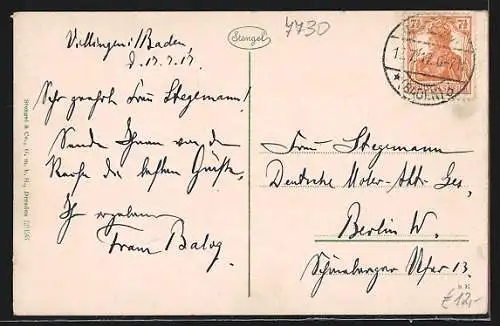 4430
Stengel
7½ 7½
(BADEN)
Villingen i/Baden,
d. 13.7.17.
Sehr geehrte Frau Stegemann!
Sende Ihnen von der
Reise die besten Grüße,
Ihr ergebener
Franz Balog
Stengel & Co., G. m. b. H., Dresden
Frau Stegemann
Deutsche Motor-Ges,
Berlin W.
Schöneberger Ufer 13.
€12,-